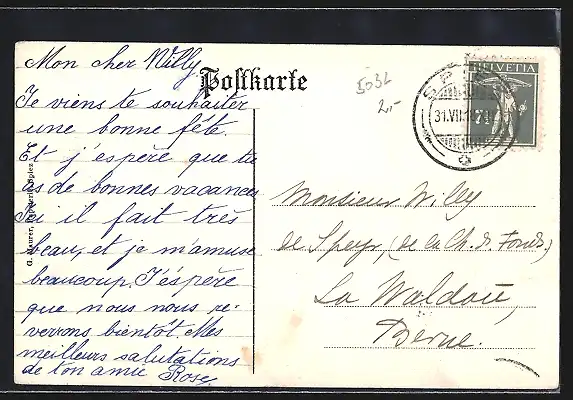 Mon cher Willy
Postkarte
Je viens te souhaiter
une bonne fête.
Et j'espère que tu
as de bonnes vacances
Ici il fait très
beau, et je m'amuse
beaucoup, J'éspère
que nous nous re-
verrons bientôt. Mes
meilleurs salutations
de ton amie Rose
G. Maurer, Spiez
2.-
HELVETIA
7½
SPIEZ
31.VII.18
Monsieur Willy
de Speyr, (de la Ch. d. Fonds)
La Waldau,
Berne.